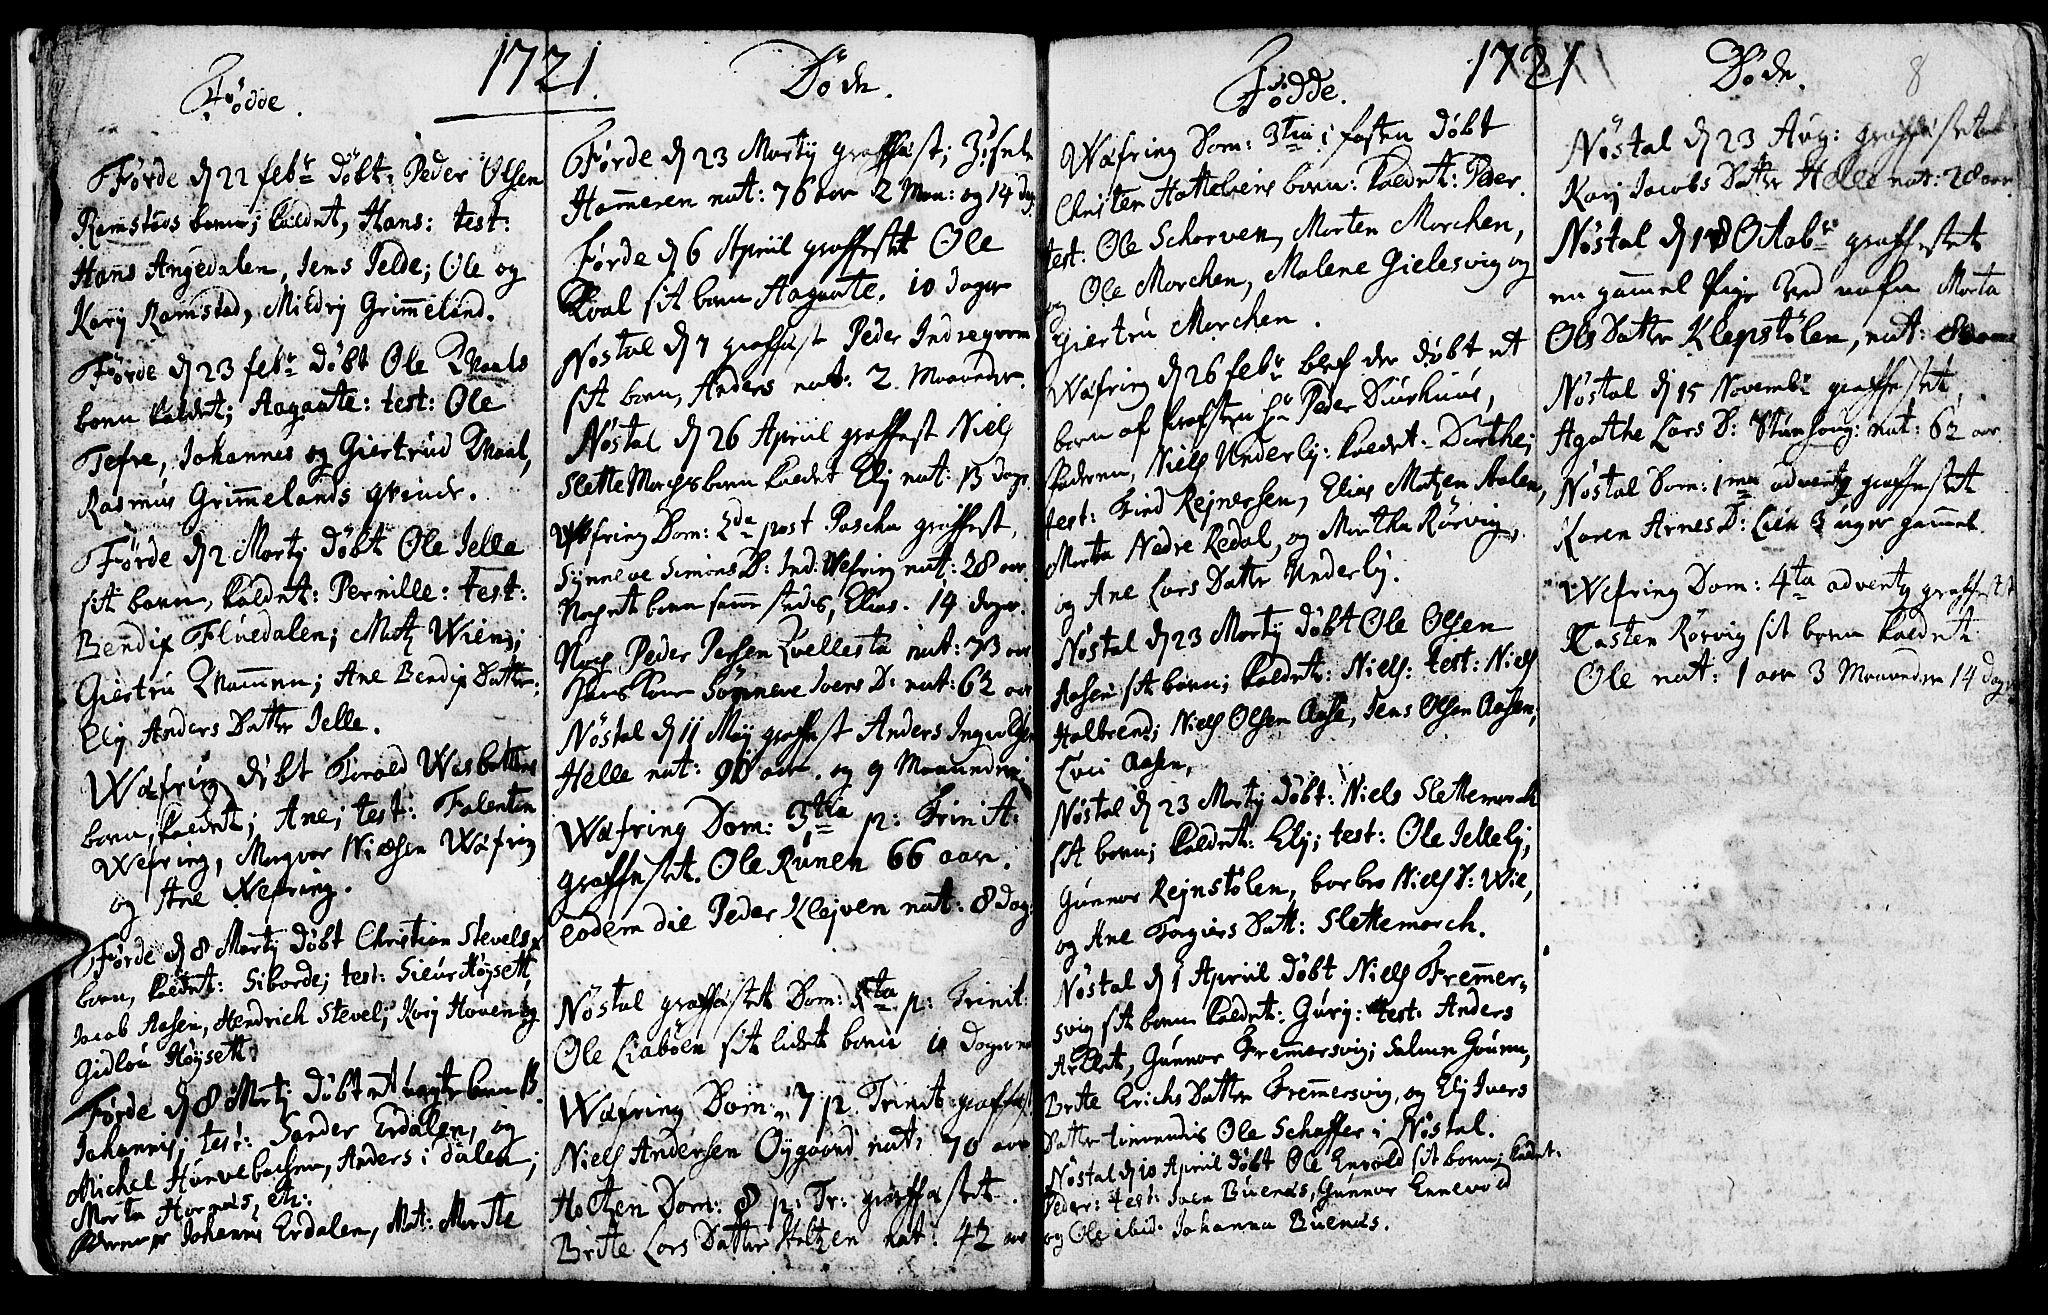 1721.
Fødde.
Førde d 22 febr døbt: Peder Olsen
Ramstads barn; kaldet, Hans: test:
Hans Angedalen, Jens Jelde; Ole og
Karj Ramstad, Mildrj Grimeland.
Førde d 23 febr døbt Ole Qvaals
barn kaldet; Aagaate: test: Ole
Tefre, Johannes og Giertrud Qvaal,
Rasmus Grimelands qvinde.
Førde d 2 Martij døbt Ole Jelle
sit barn, kaldet: Pernille: test:
Bendix Fluedalen; Matz Wiens;
Giertru Qvammen; Ane Bendix Datter;
Elj Anders Datter Jelle.
Wæfring døbt Torald Wasbottens
barn, kaldet; Ane; test: Falentin
Wefring, Magvor Nielsen Wæfring
og Ane Wefring.
Førde d 8 Martij døbt Christian Stevels
barn, kaldet: Siborde; test: Siur Høysett,
Jacob Aasen, Hendrich Stevel; Karj Hoven og
Gidlou Høysett.
Førde d 8 Martij døbt et barn
Johannis; test: Sander Erdalen, og
Michel Hunvebachen, Anders i dalen;
Marta Hornnes, etc:
Johannis Erdalen, Mat: Marite
Døde.
Førde d 23 Martij graffæst; Zidsele
Hammeren nat: 76 aar 2 Maa: og 14 dag
Førde d 6 Apriil graffestet Ole
Qvaal sit barn Aagaate. 10 dager
Nøstal d 7 graffæst Peder Indregorm
sit barn, Anders nat: 2 Maaneder.
Nøstal d 26 Apriil graffæst Niels
SletteMarchs barn kaldet Elj nat: 13 dage.
Wefring Dom: 2da post Pascha graffest,
Synneve Simons D: Ind: Wefring nat: 28 aar.
Noch et barn samme steds, Elias. 14 dager.
Noch Peder Persen Qvellestad nat: 73 aar
Hans Kone Sønneve Ivers D: nat: 62 aar
Nøstal d 11 Maij graffæst Anders Ingvoldsen
Helle nat: 90 aar. og 9 Maaneder
Wæfring Dom: 3tia p: Trinit:
graffestet. Ole Runen 66 aar.
eodem die Peder Klejven nat: 8 Dag:
Nøstal graffæstet Dom: 5ta p: Trinit:
Ole Liabøen sit lidet barn 10 Dager
Wæfring Dom: 7 p. Trinit: graffæst
Niels Andersen Øygaard nat: 70 aar
Holtzen Dom: 8 p: Tr: graffæstet.
Brite Lars Datter Holtzen nat: 42 aar
1721
Fødde.
Wæfring Dom: 3tia i fasten døbt
Christen Hattelvens barn: kaldet: Peder.
test: Ole Scharven, Morten Marchen,
og Ole Marchen, Malene Gielesvig og
Giertru Marchen.
Wæfring d 26 febr blef der døbt et
barn af Peder Suurhuus,
Faderen, Niels Underlj: kaldet: Dorthe;
test: Find Rejnersen, Elias Matzen Aalen,
Marta Nedre Redal, og Martha Rørvig,
og Ane Lars Datter Underlj.
Nøstal d 23 Martij døbt Ole Olsen
Aasen sit barn; kaldet: Niels: test: Niels
Halbrend; Niels Olsen Aase, Jens Olsen Aasen;
Luci Aasen,
Nøstal d 23 Martij døbt: Niels Slettemarch
sit barn; kaldet: Elj; test: Ole Jellelj;
Gunnar Rejnstølen, barbro Niels D: Wie,
og Ane Torgiers Datt: Slettemarch.
Nøstal d 1 Apriil døbt Niels Fremmer-
svig sit barn kaldet: Gurj: test: Anders
Arklet, Gunnar Fremmersvig; Salmen Gouen,
Brite Erichs Datter Fremmersvig, og Elj Ivers
Datter tienendis Ole Schaffer i Nøstal.
Nøstal d 10 Apriil døbt Ole Envold sit barn; kaldet:
Peder: test: Iven Buenæs, Gunnar Ennevold
og Ole ibid. Johanna Buenæs.
Døde.
8
Nøstal d 23 Aug: graffæstet
Karj Jacobs Datter Helle nat: 28 aar.
Nøstal d 18 Octobr graffestet
en gammel Pige ved nafn Marta
Ols Datter Klepstølen, nat: 80 aar
Nøstal d 15 Novembr graffestet,
Agathe Lars D: Stunhoug: nat: 62 aar.
Nøstal Dom: 1ma adventg graffestet
Karen Arnes D: Lien 3 uger gammel.
Wefring Dom: 4ta adventg graffestet
Karsten Rørvig sit barn kaldet
Ole nat: 1 aar 3 Maaneder 14 Dage